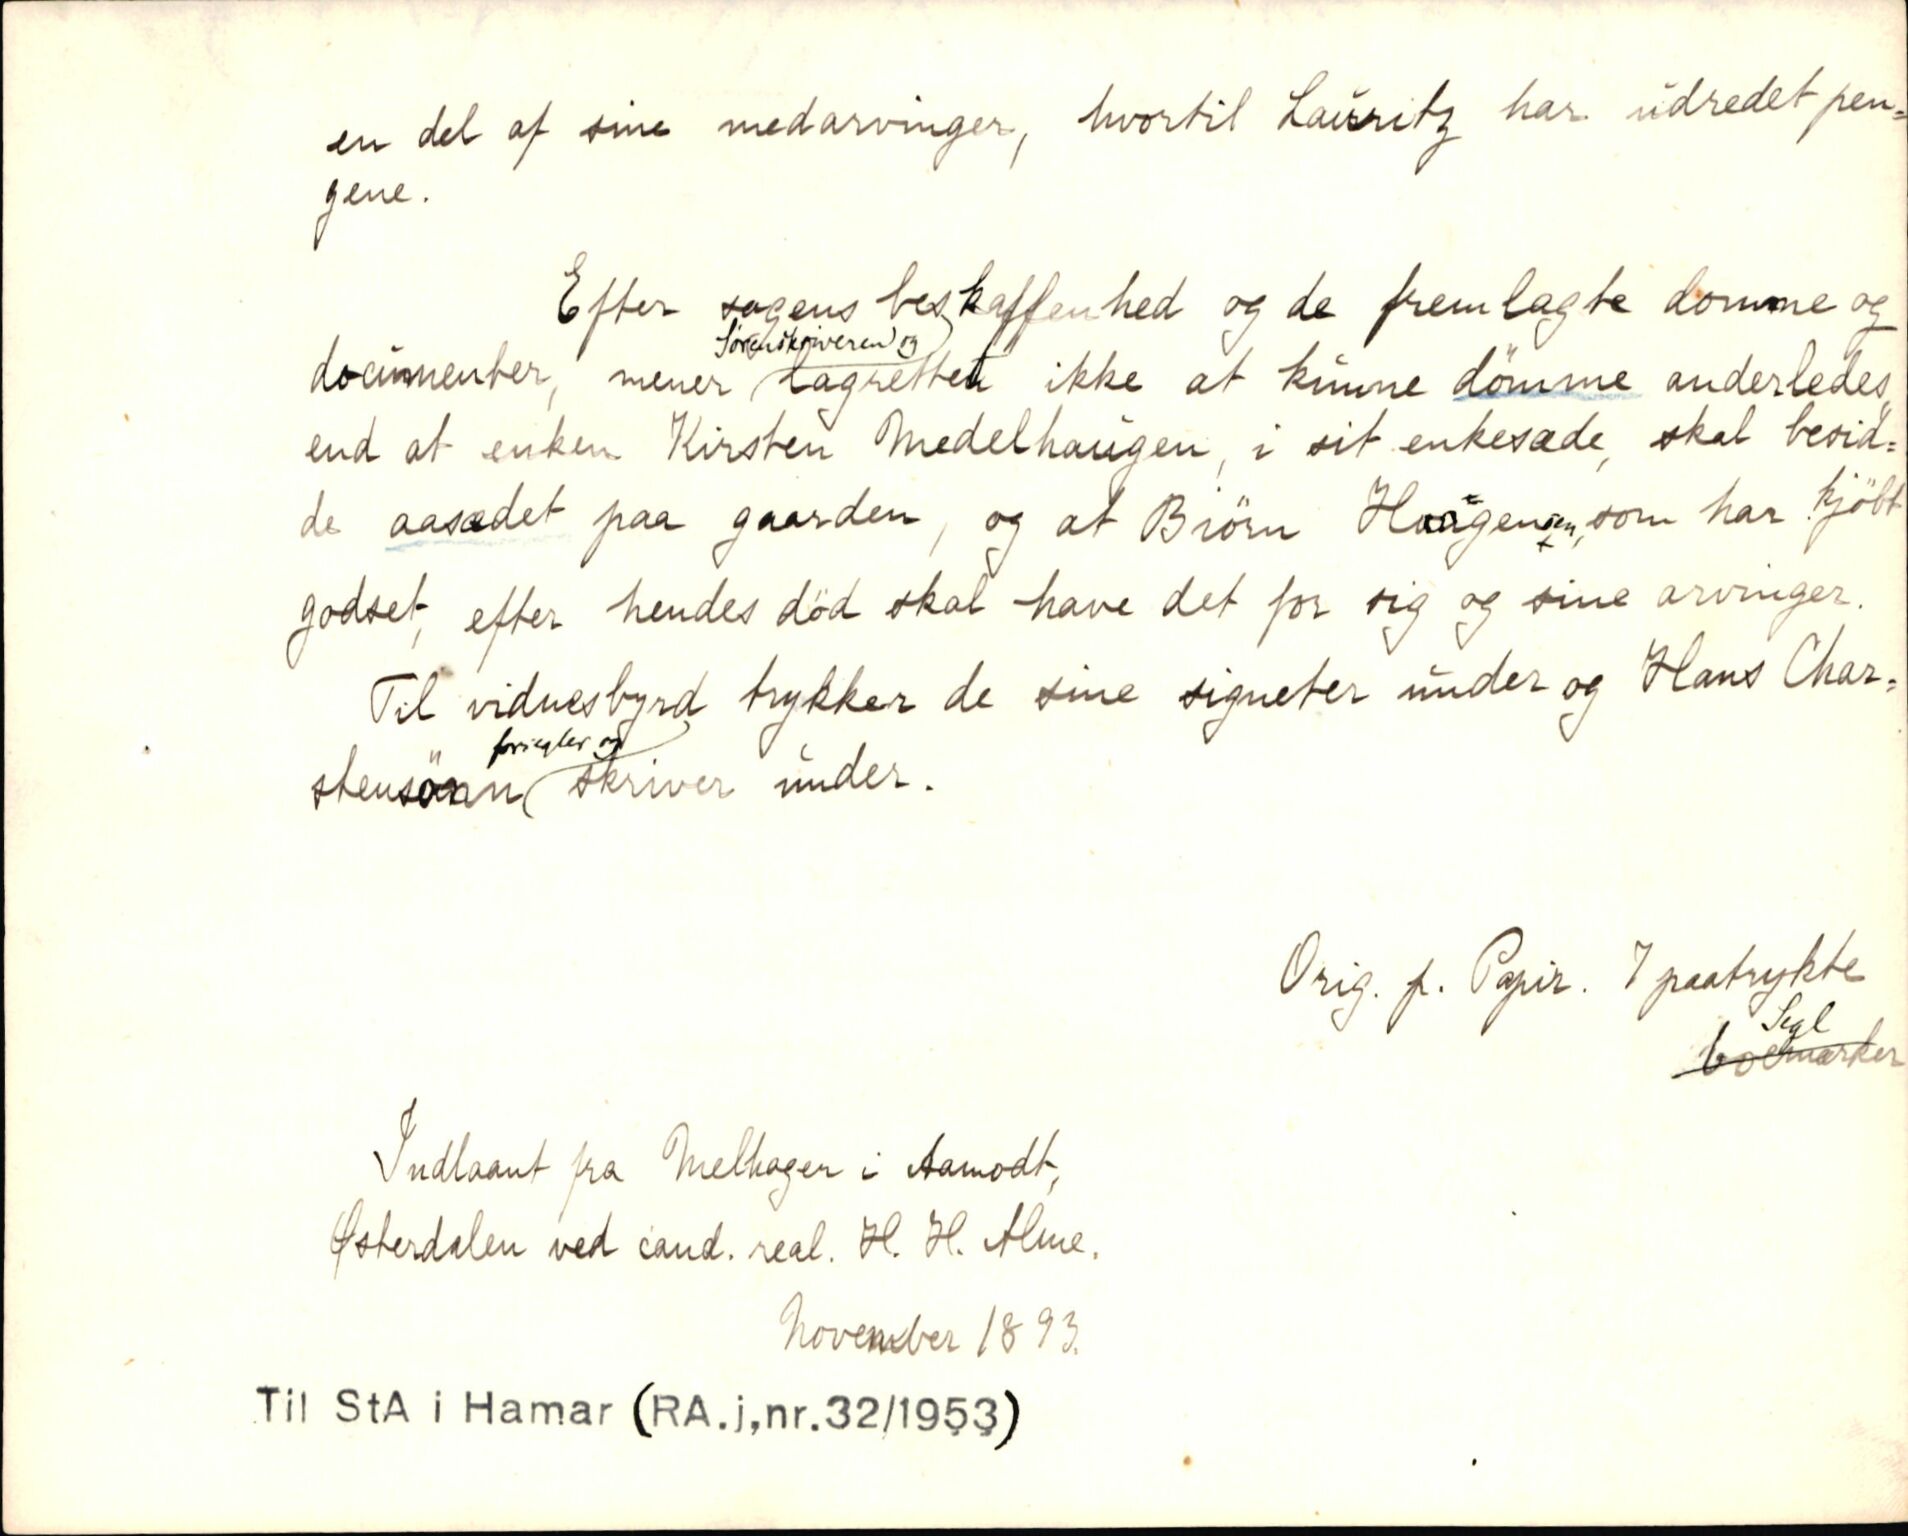 en del af sine medarvinger, hvortil Lauritz har udredet pen=
gene.
Efter sagens beskaffenhed og de fremlagte domme og
Sörenskriveren og
documenter, mener lagretten ikke at kunne dömme anderledes,
end at enken Kirsten Medelhaugen, i sit enkesæde, skal besid=
de aasædet paa gaarden, og at Biörn Haagensen, som har kjöbt
godset, efter hendes död skal have det for sig og sine arvinger.
Til vidnesbyrd trykker de sine signeter under og Hans Char=
forsegler og
stensönn skriver under.
Orig. p. Papir. 7 paatrykte
Segl
bomærker
Indlaant fra Melhagen i Aamodt,
Østerdalen ved cand. real. H. H. Alme.
November 1893.
Til StA i Hamar (RA.j,nr.32/1953)